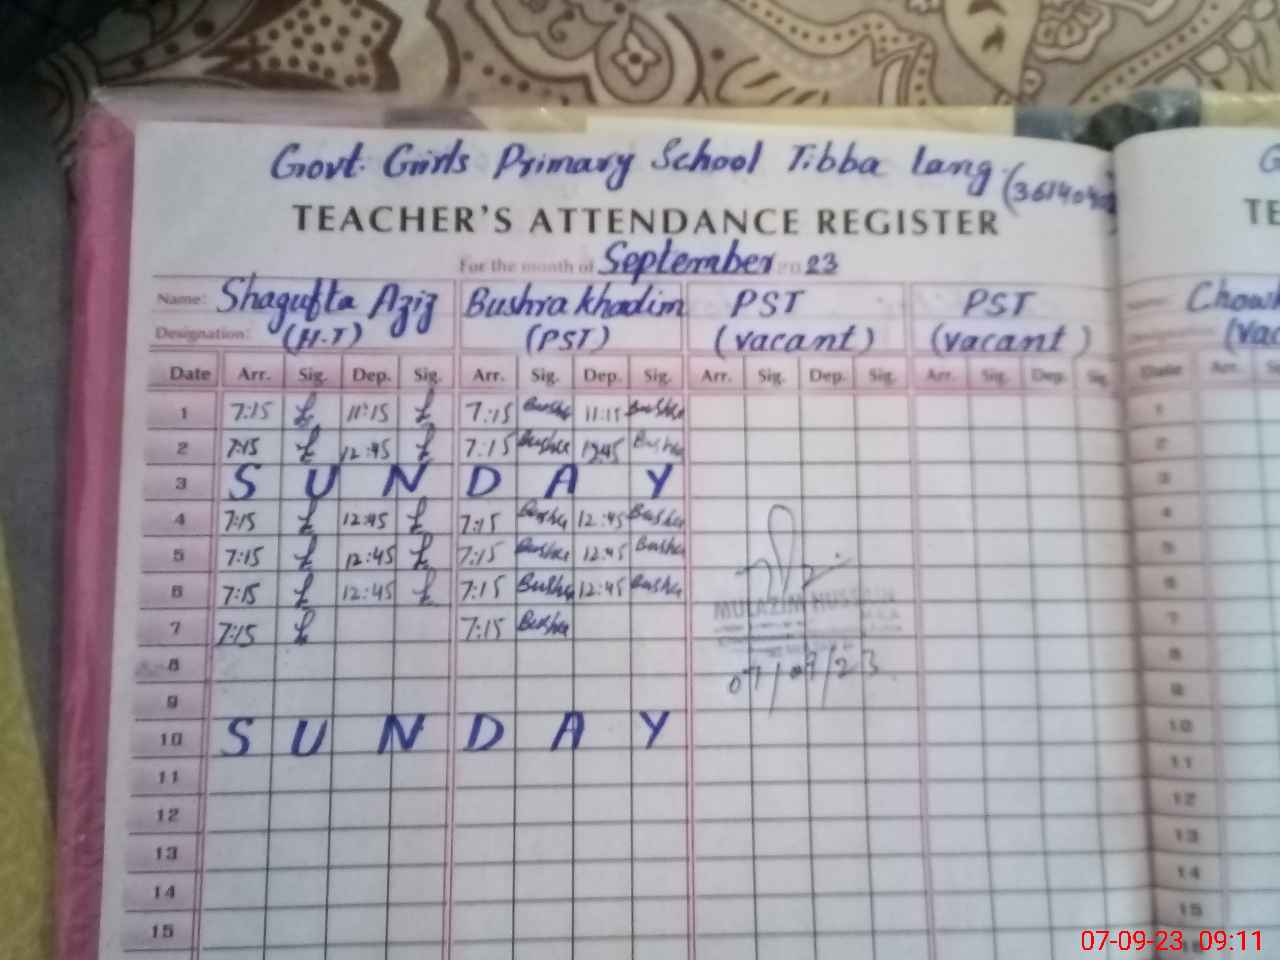 Govt. Girls Primary School Tibba Lang
TEACHER'S ATTENDANCE REGISTER
For the month of September 23
Name: Shagufta Aziz Bushra Khadim PST PST
Designation: (H.T) (PST) (vacant) (vacant)
Date Arr. Sig. Dep. Sig. Arr. Sig. Dep. Sig. Arr. Sig. Dep. Sig. Arr. Sig. Dep. Sig. Date
1 7:15 11:15 7:15 Bushra 11:15 Bushra 1
2 7:15 12:45 7:15 Bushra 12:45 Bushra 2
3 S U N D A Y 3
4 7:15 12:45 7:15 Bushra 12:45 Bushra 4
5 7:15 12:45 7:15 Bushra 12:45 Bushra 5
6 7:15 12:45 7:15 Bushra 12:45 Bushra 6
MULAZIM HUSSAIN
7 7:15 7:15 Bushra 7
8 07/09/23 8
9 9
10 S U N D A Y 10
11 11
12 12
13 13
14 14
15 15
07-09-23 09:11